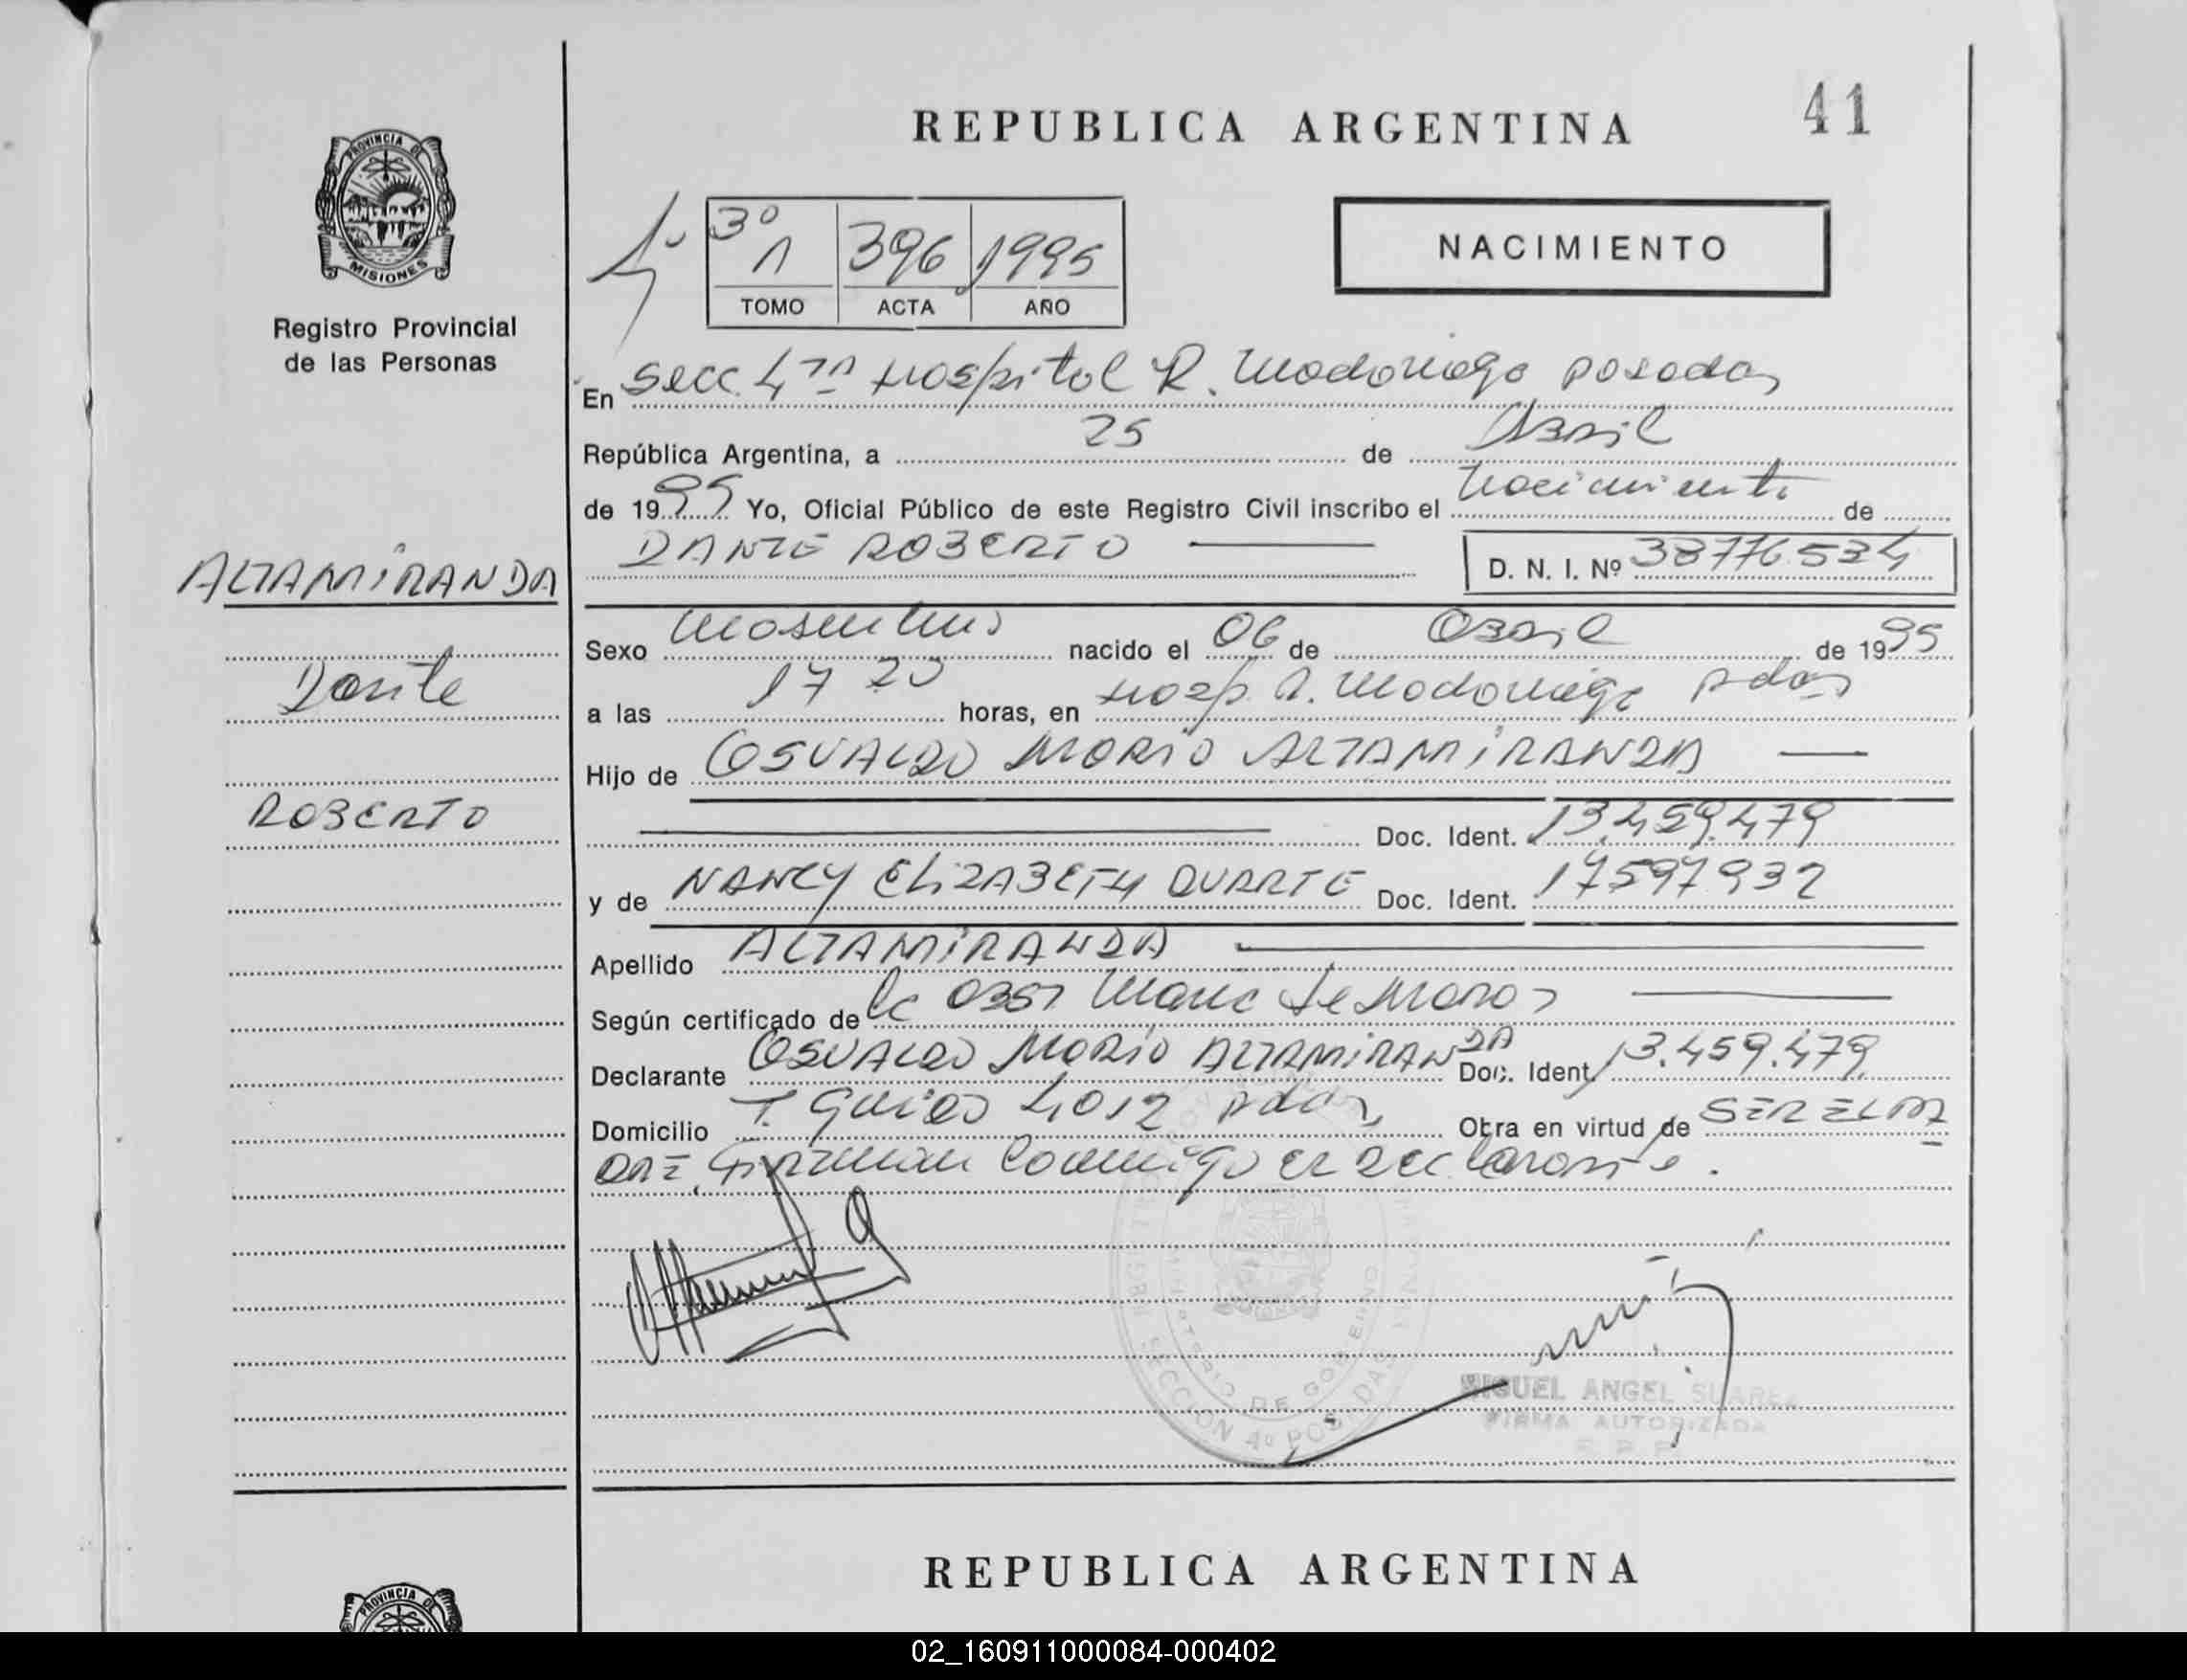 REPUBLICA ARGENTINA
41
PROVINCIA DE
MISIONES
Registro Provincial
de las Personas
3º
1 396 1995
TOMO ACTA AÑO
NACIMIENTO
En Secc 4ta Hospital R. Madariaga Posadas
República Argentina, a 25 de Abril
de 1995 Yo, Oficial Público de este Registro Civil inscribo el Nacimiento de
DANTE ROBERTO
D. N. I. Nº 38776534
ALTAMIRANDA
Dante
ROBERTO
Sexo Masculino nacido el 06 de Abril de 1995
a las 17 20 horas, en Hosp. R. Madariaga Pdas
Hijo de OSVALDO MARIO ALTAMIRANDA
Doc. Ident. 13.459.479
y de NANCY ELIZABETH DUARTE Doc. Ident. 17597932
Apellido ALTAMIRANDA
Según certificado de
Declarante OSVALDO MARIO ALTAMIRANDA Doc. Ident. 13.459.479
Domicilio 4012 Pdas Obra en virtud de SER EL PA
DRE, Firman Conmigo el declarante.
REGISTRO PROVINCIAL
MINISTERIO DE GOBIERNO
SECCION 4º POSADAS
MIGUEL ANGEL SUAREZ
FIRMA AUTORIZADA
R. P. P.
REPUBLICA ARGENTINA
PROVINCIA DE
02_160911000084-000402